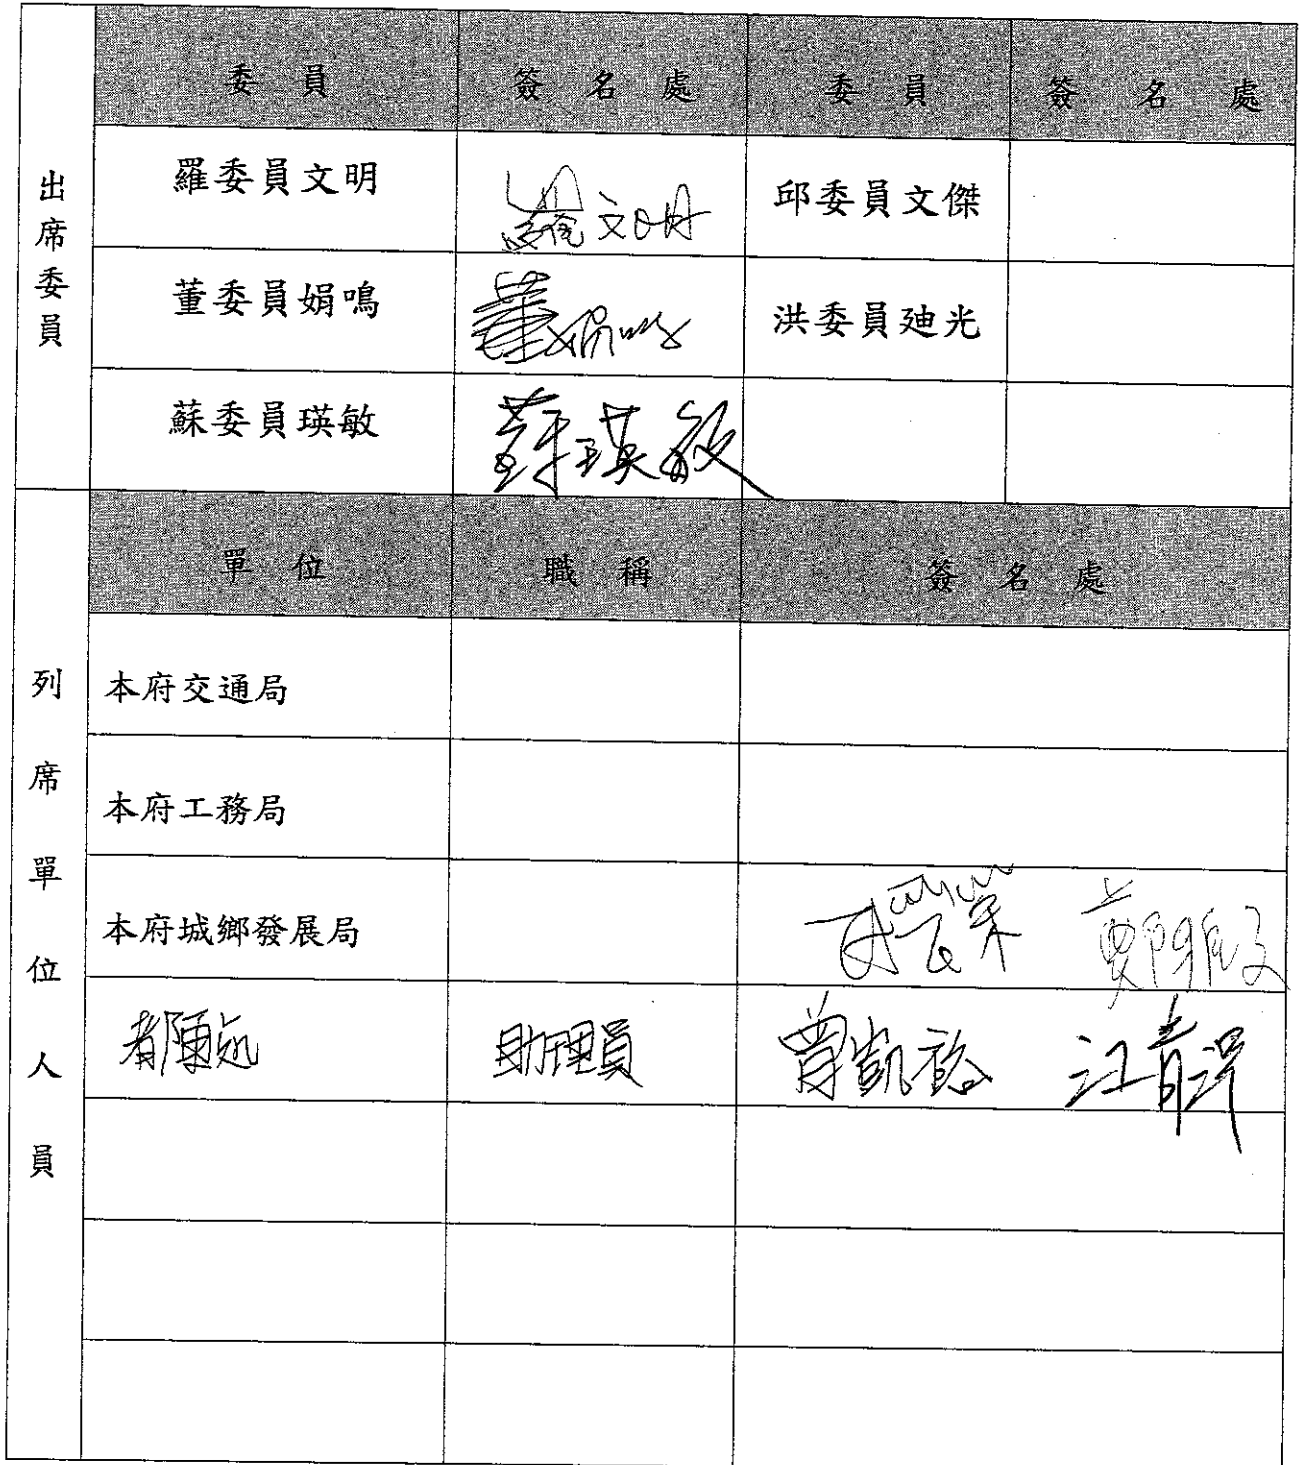 出席委員
委員 簽名處 委員 簽名處
羅委員文明 羅文明 邱委員文傑
董委員娟鳴 董娟鳴 洪委員廸光
蘇委員瑛敏 蘇瑛敏
列席單位人員
單位 職稱 簽名處
本府交通局
本府工務局
本府城鄉發展局
助理員 曾凱裕